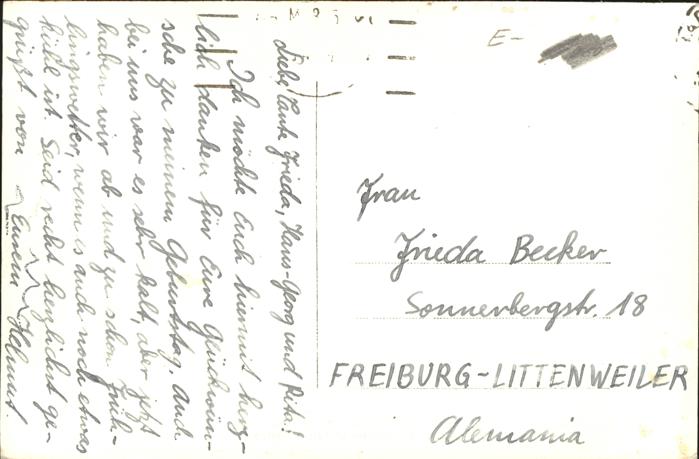 Liebe Tante Frieda, Hans-Georg und Rita!
Ich möchte Euch hiermit herz-
lich danken für Eure Glückwün-
sche zu meinem Geburtstag. Auch
bei uns war es sehr kalt, aber jetzt
haben wir ab und zu schon Früh-
lingswetter, wenn es auch noch etwas
kühl ist. Seid recht herzlichst ge-
grüßt von Eurem Helmut
E-
Frau
Frieda Becker
Sonnerbergstr. 18
FREIBURG-LITTENWEILER
Alemania